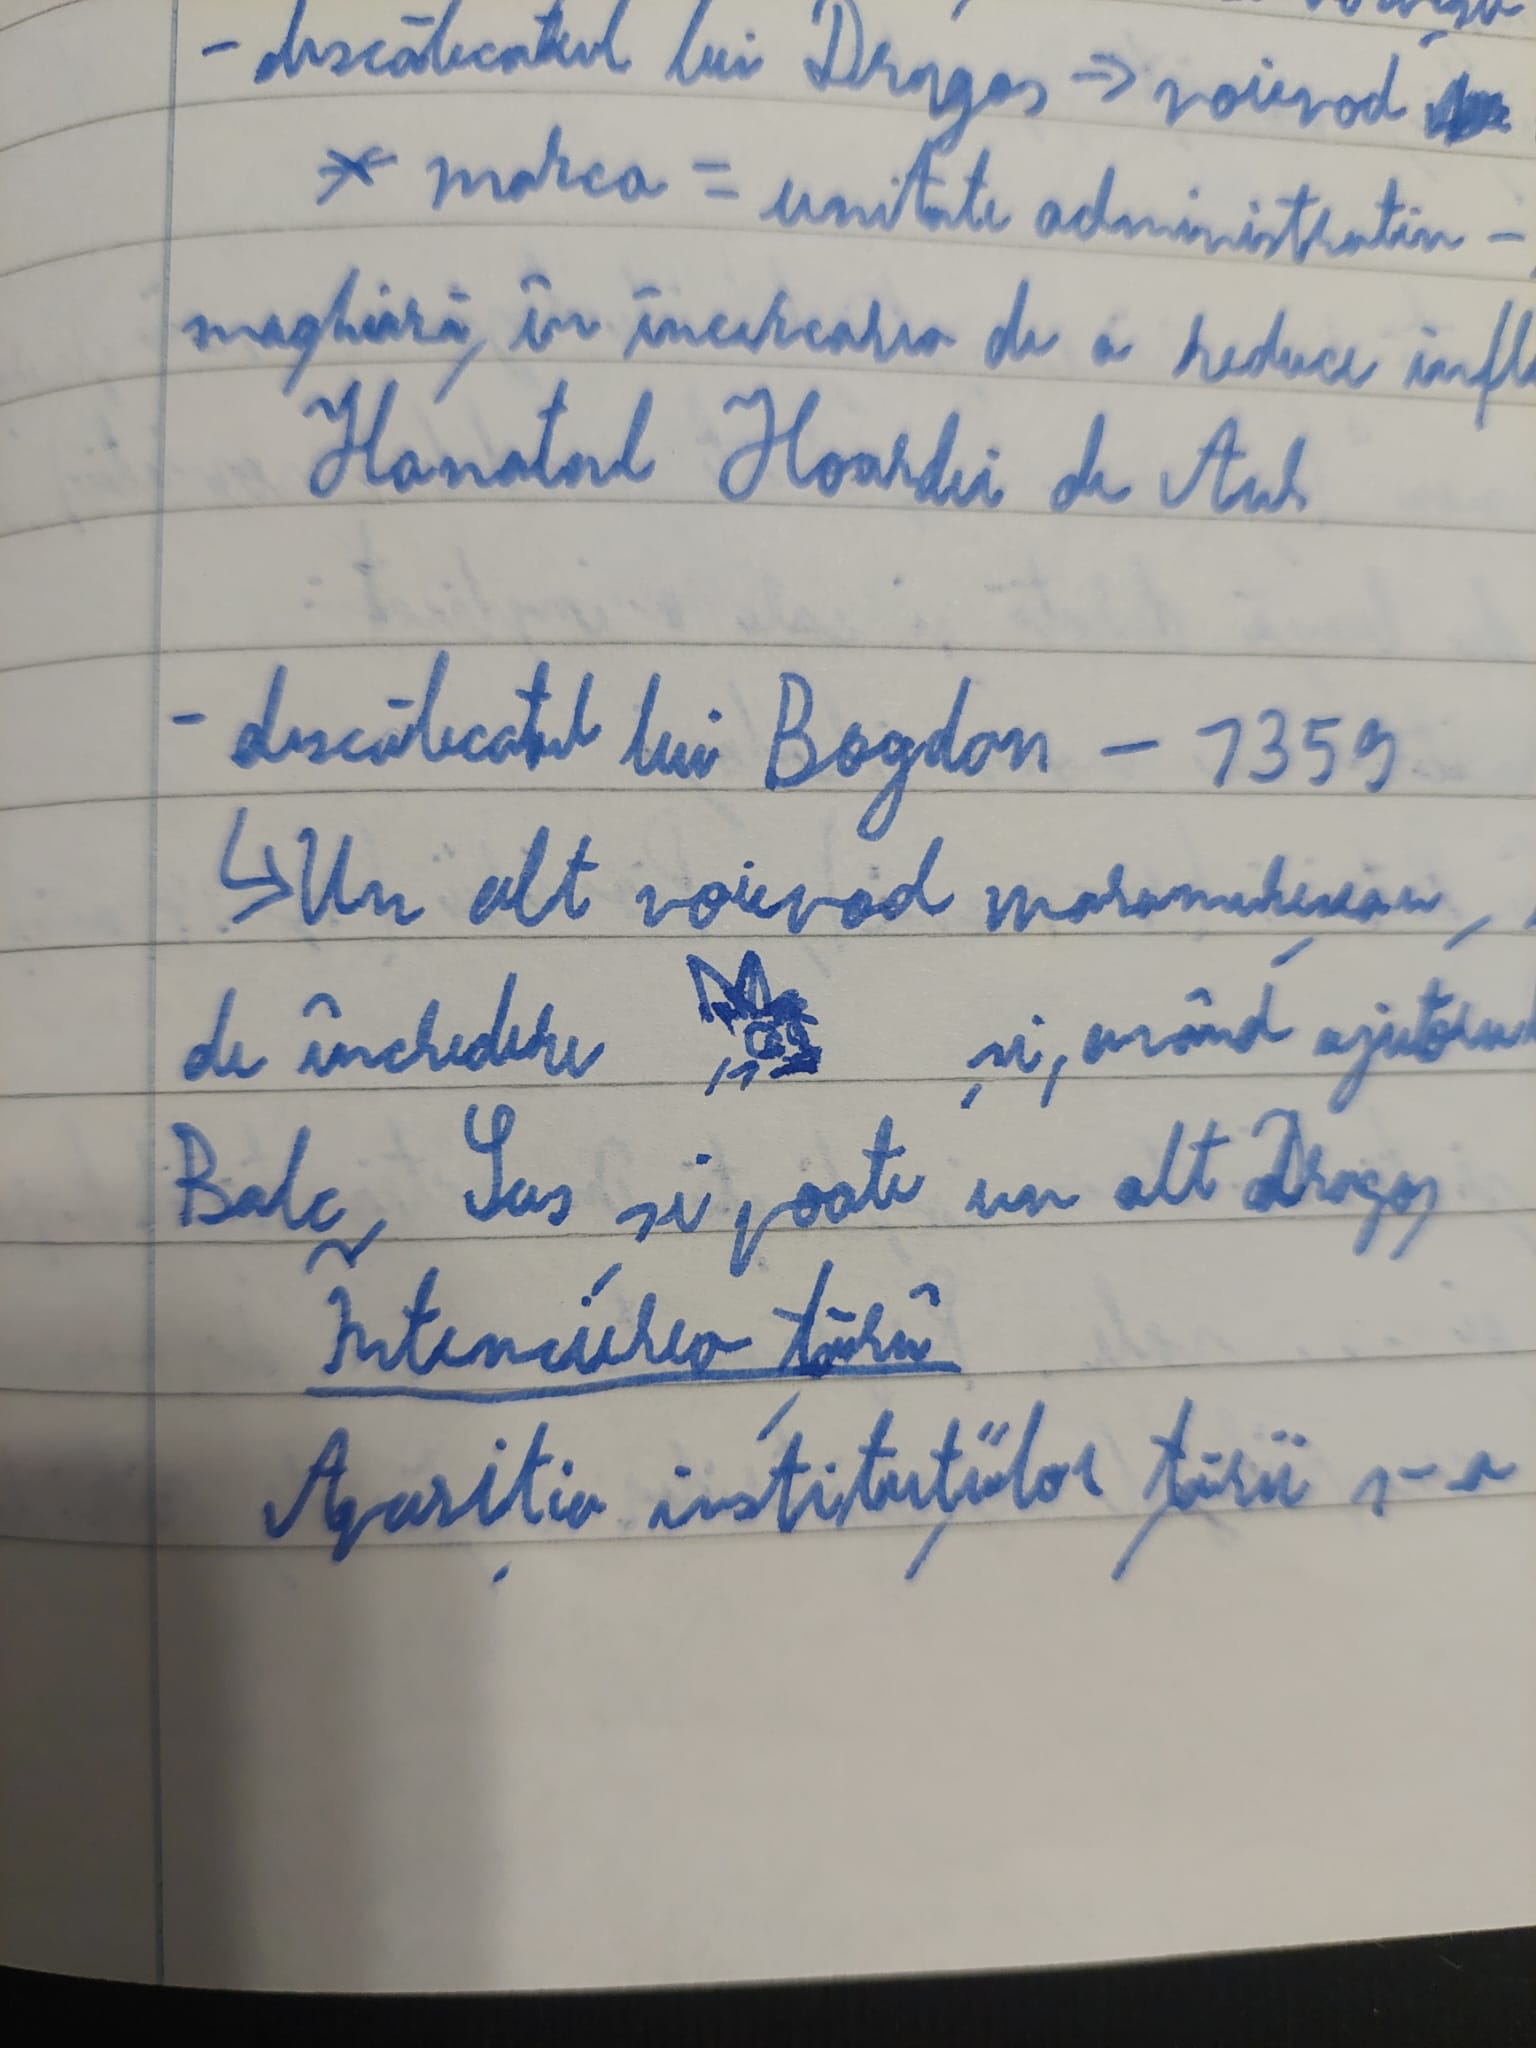 - descălecatul lui Dragoș => voievod
* marca = unitate administrativ -
maghiară, în încercarea de a reduce infl
Hanatul Hoardei de Aur
- descălecatul lui Bogdan - 1359
↳ Un alt voievod maramureșean,
de încredere și, având ajutoru
Balc, Sas și poate un alt Dragoș
Întemeierea țării
Apariția instituțiilor țării s-a